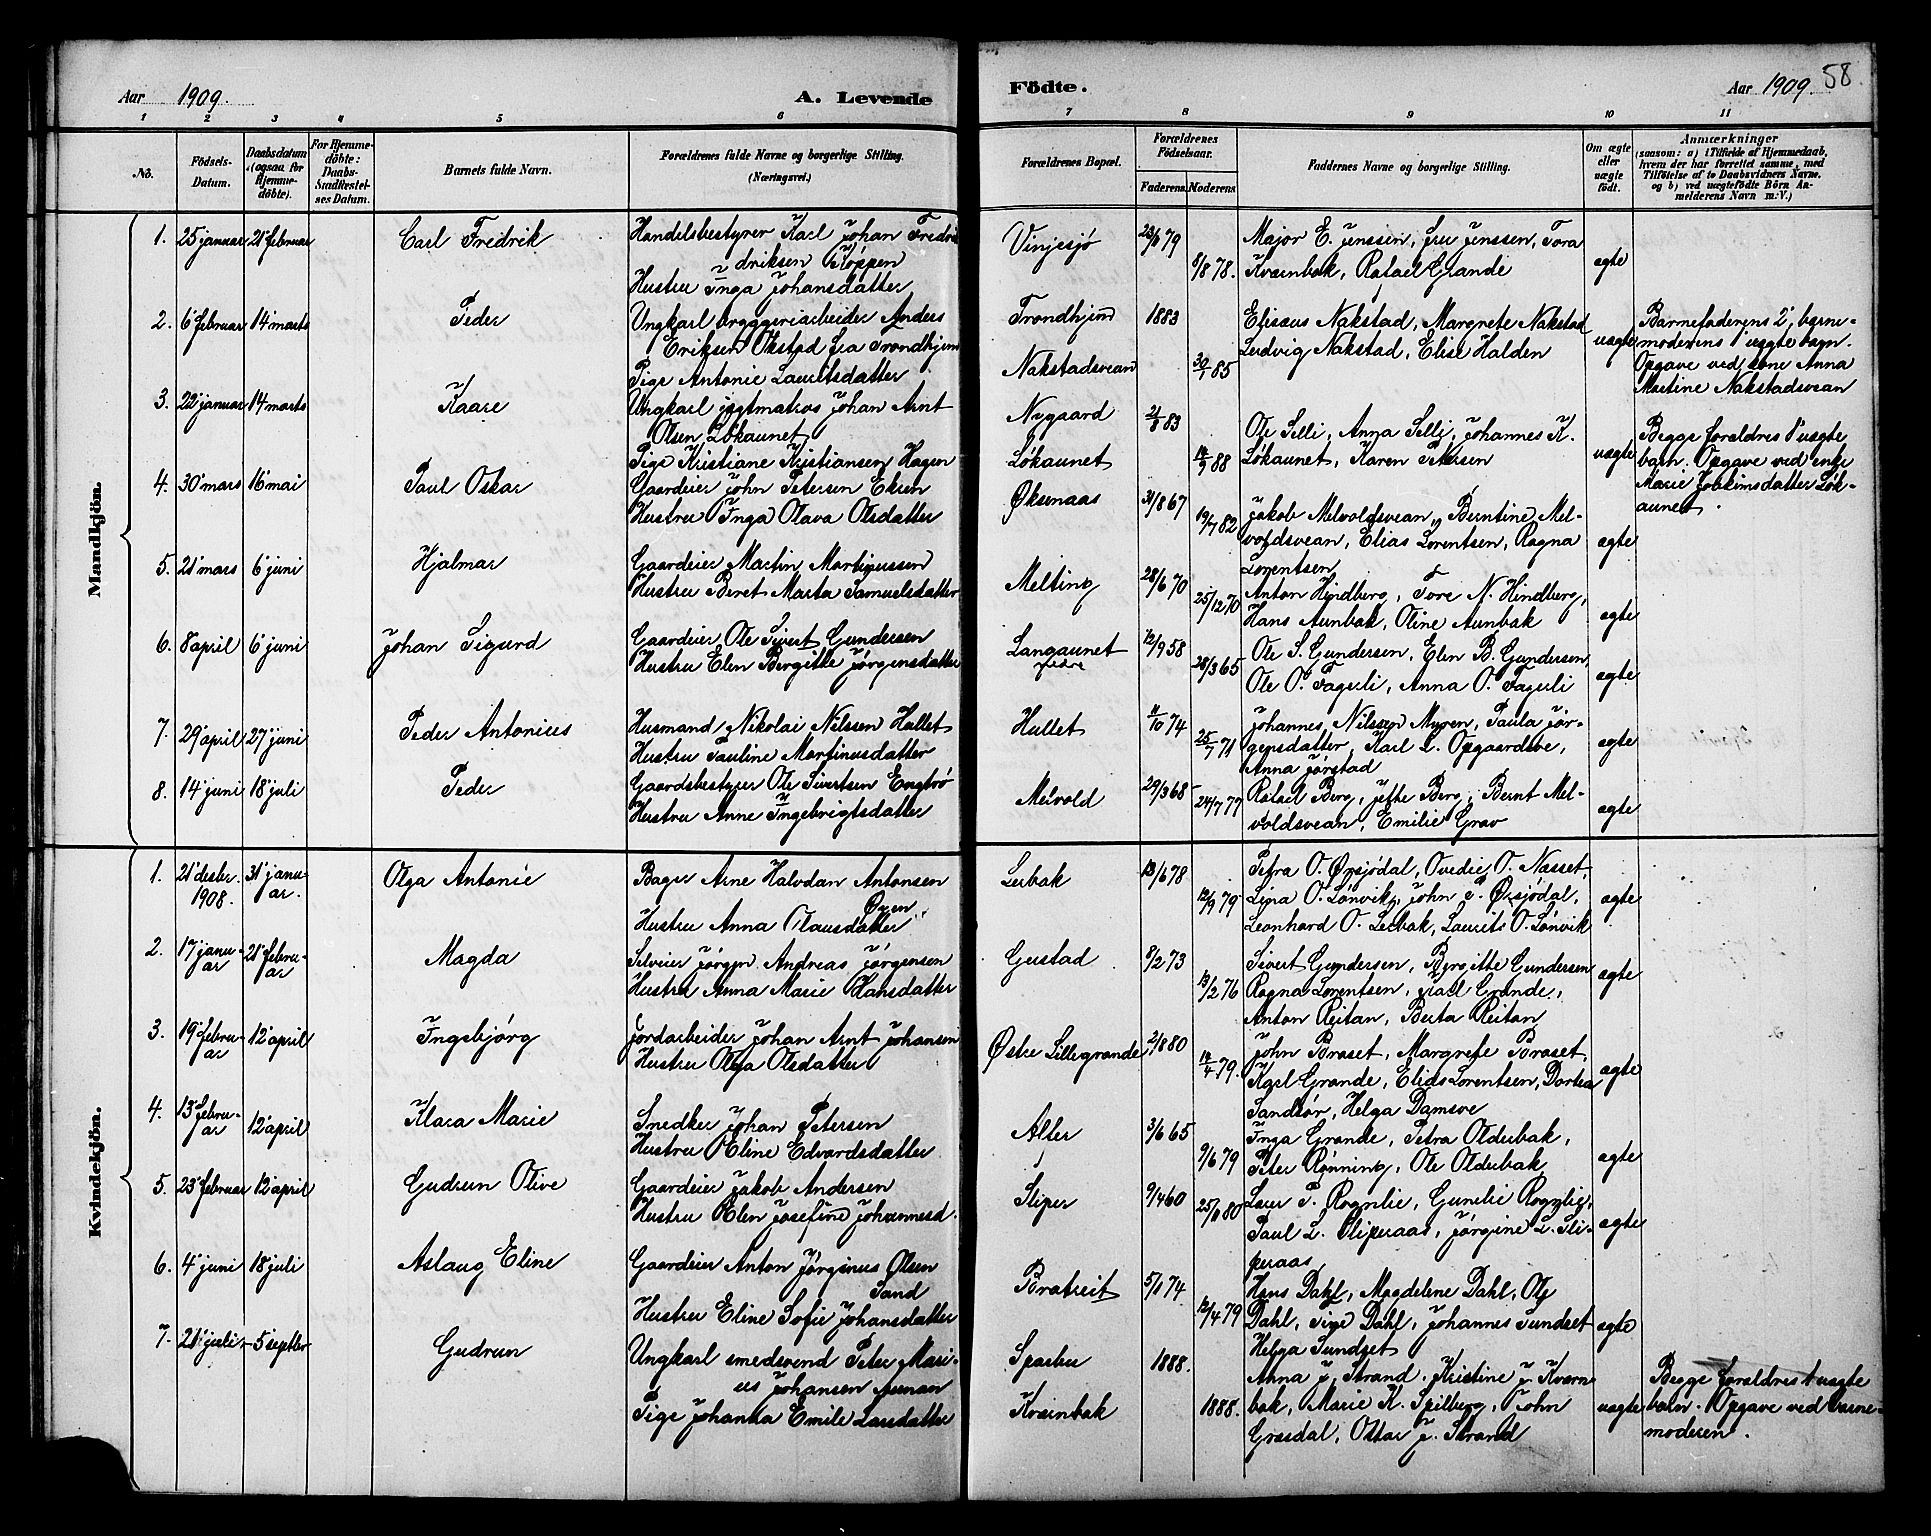 Aar 1909. A. Levende
Födte. Aar 1909. 58
1 2 3 4 5 6 7 8 9 10 11
No.
Födsels-Datum.
Daabsdatum (ogsaa for Hjemmedöbte).
For Hjemmedöbte: Daabs-Stadfestelses Datum.
Barnets fulde Navn.
Forældrenes fulde Navne og borgerlige Stilling.
(Næringsvei.)
Forældrenes Bopæl.
Forældrenes Födselsaar.
Faderens Moderens
Faddernes Navne og borgerlige Stilling.
Om ægte eller uægte födt.
Anmærkninger
(saasom: a) i Tilfælde af Hjemmedaab,
hvem der har forrettet samme, med
Tilföielse af to Daabsvidners Navne.
og b) ved uægtefödte Börn An-
melderens Navn m.V.)
Mandkjön.
1. 25' januar 21' februar Carl Fredrik
Handelsbestyrer Karl Johan Fredri
driksen Koppen
Hustru Inga Johansdatter
Vinjesjø 79
8/8 78.
Major E. Jenssen, fru Jenssen, Tora
Kvernbak, Rafael Grande
ægte
2. 6' februar 14' marts Peder
Ungkarl bryggeriarbeider Anders
Eriksen Okstad fra Trondhjem
Pige Antonie Lauritsdatter
Trondhjem 1883
Nakstadsvean 30/1 85
Elisæus Nakstad, Margrete Nakstad
Ludvig Nakstad, Elise Halden
uægte
Barnefaderens 2', barne-
moderens 1' uægte barn.
Opgave ved kone Anna
Martine Nakstadsvean
3. 22' januar 14' marts Kaare
Ungkarl jægtmatros Johan Arnt
Olsen Løkaunet
Pige Kristiane Kristiansen Hagen
Nygaard 21/8 83
Løkaunet 88
Ole Selli, Anna Selli, Johannes K.
Løkaunet, Karen Petersen
uægte
Begge foraldres 1' uægte
barn. Opgave ved enke
Marie Joakimsdatter Løk-
aunet.
4. 30' mars 16' mai Paul Oskar
Gaardeier John Petersen Ekren
Hustru Inga Olava Olsdatter
Øksnaas 31/8 67
19/7 82
Jakob Melvoldsvean, Berntine Mel-
voldsvean, Elias Lorentsen, Ragna
Lorentsen
ægte
5. 21' mars 6' juni Hjalmar
Gaardeier Martin Martinussen
Hustru Beret Marta Samuelsdatter
Melting 28/6 70
25/12 70
Anton Hindberg, Tore N. Hindberg,
Hans Aunbak, Oline Aunbak
ægte
6. 8' april 6' juni Johan Sigurd
Gaardeier Ole Sivert Gundersen
Hustru Elen Bergitte Jørgensdatter
Langaunet 12/9 58
28/3 65
Ole S. Gundersen, Elen B. Gundersen,
Ole O. Fagerli, Anna O. Fagerli
ægte
7. 29' april 27' juni Peder Antonius
Husmand Nikolai Nilssen Hullet
Hustru Pauline Martinusdatter
Hullet 11/10 74
25/7 71
Johannes Nilssen Myren, Paula Jør-
gensdatter, Karl L. Opgaardsve,
Anna Jørstad
ægte
8. 14' juni 18' juli Peder
Gaardsbestyrer Ole Sivertsen Engtrø
Hustru Anne Ingebrigtsdatter
Melvold 29/3 68
24/7 77
Rafael Berg, Jethe Berg, Bernt Mel-
voldsvean, Emilie Grav
ægte
Kvindekjön.
1. 21' desbr. 1908. 31' janu-
ar. Olga Antonie
Bager Arne Halvdan Antonsen
Øren
Hustru Anna Olausdatter
Leebak 13/6 78
12/9 79
Petra O. Ørsjødal, Ovedie O. Nasset,
Lina O. Lønvik, John P. Ørsjødal,
Leonhard O. Leebak, Laurits O. Lønvik
ægte
2. 17' janu-
ar 21' febru-
ar Magda
Selveier Jørgen Andreas Jørgensen
Hustru Anna Marie Hansdatter
Gustad 8/2 73
13/2 76
Sivert Gundersen, Bergitte Gundersen
Ragna Lorentsen, Karl Grande,
Anton Reitan, Berta Reitan
ægte
3. 19' febru-
ar 12' april Ingebjørg
Jordarbeider Johan Arnt Johansen
Hustru Olga Olsdatter
Østre Lillegrande 2/8 80
14/4 79.
John Braset, Margrete Braset,
Karl Grande, Elias Lorentsen, Dortea
Sandsør, Helga Damsve
ægte
4. 13' febru-
ar 12' april Klara Marie
Snedker Johan Petersen
Hustru Eline Edvardsdatter
Alter 3/6 65
9/6 79
Inga Grande, Petra Olderbak,
Peter Rønning, Ole Olderbak
ægte
5. 23' februar 12' april Gudrun Olive
Gaardeier Jakob Andersen
Hustru Elen Josefine Johannesd.
Sliper 9/4 60
80
Laur P. Rognlie, Gunelie Rognlie,
Paul L. Sliperaas, Jørgine L. Sli-
peraas
ægte
6. 4' juni 18' juli Aslaug Eline
Gaardeier Anton Jørginus Olsen
Sand
Hustru Eline Sofie Johansdatter
Bratreit 5/1 74
12/4 79
Hans Dahl, Magdelene Dahl, Ole
Dahl, Sige Dahl, Johannes Sundset
Helga Sundset
ægte
7. 21' juli 5' septbr Gudrun
Ungkarl smedsvend Peter Mari-
us Johansen Aunan
Pige Johanna Emile Larsdatter
Sparbu 1888.
Kvernbak 1888.
Anna J. Strand, Kristine J. Kvern
bak, Marie K. Spilberg, John
Græsdal, Ottar J. Strand
uægte
Begge foraldres 1' uægte
barn. Opgave ved barne-
moderen.